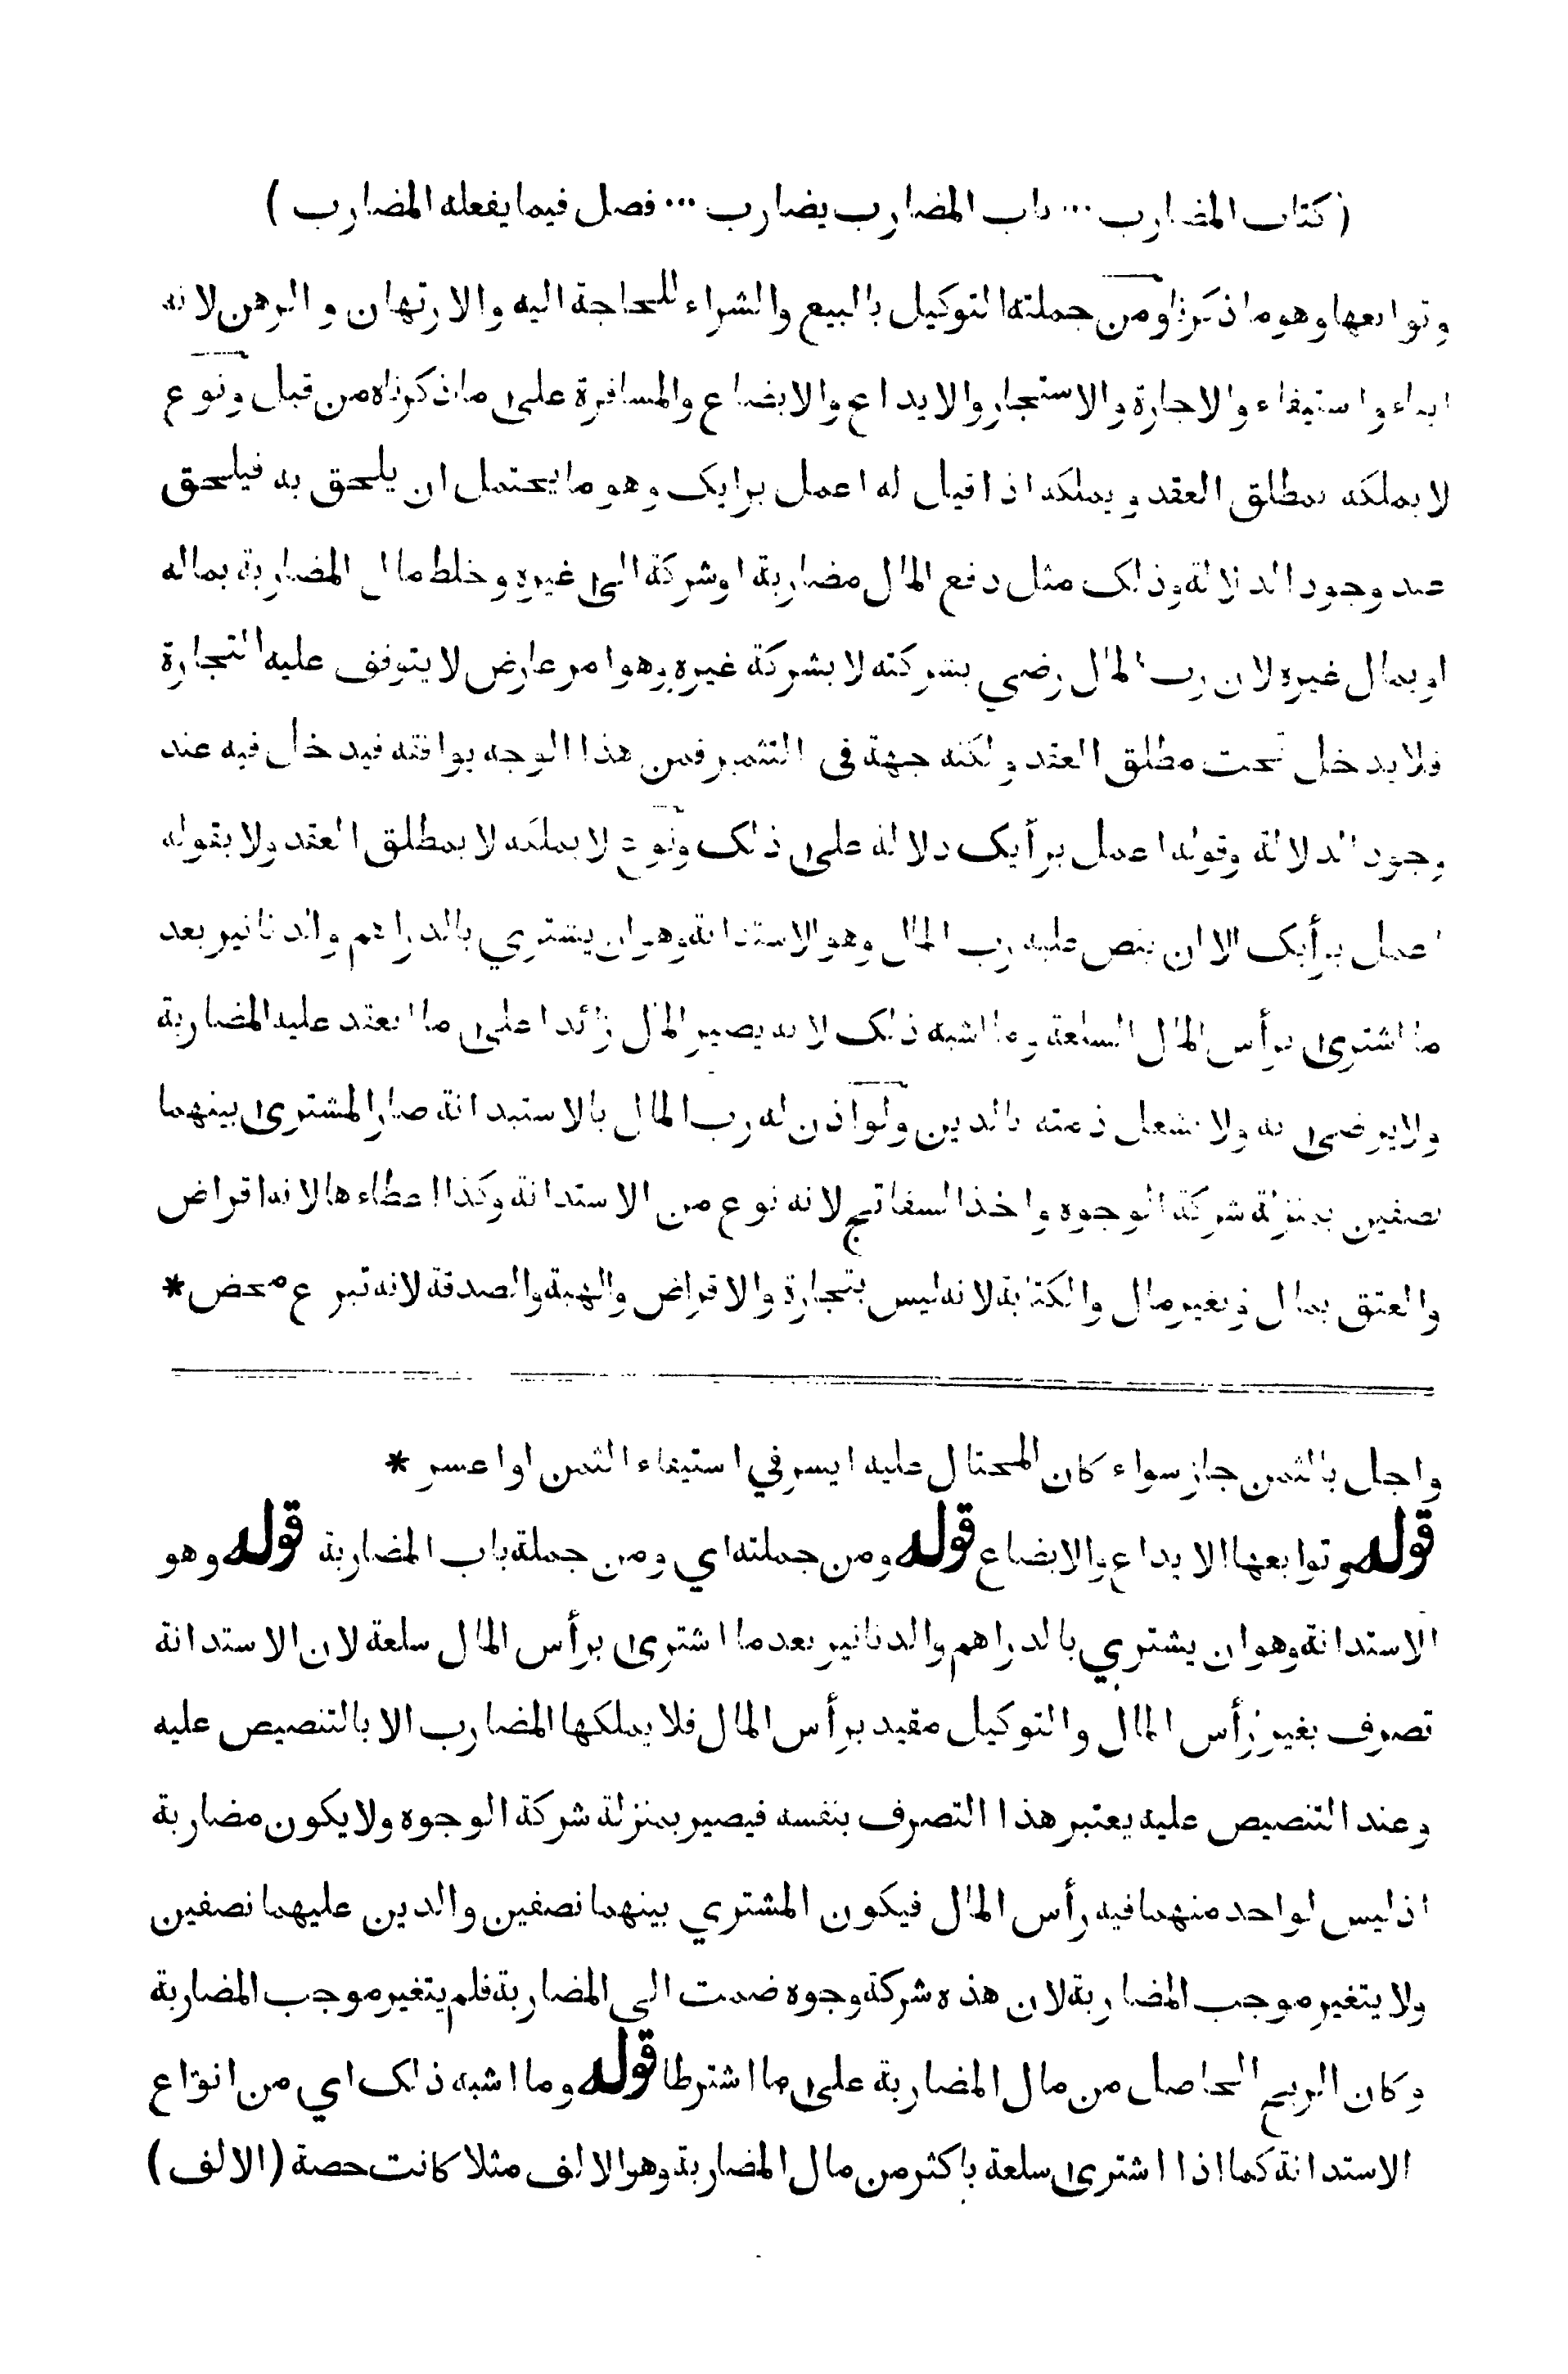 ( كتاب المضارب ... باب المضارب يضارب ... فصل فيما يفعله المضارب )
وتوابعها وهو ما ذكرنا ومن جملته التوكيل بالبيع والشراء للحاجة اليه والارتهان والرهن لانه
ايفاء واستيفاء والاجارة والاستجار والايداع والابضاع والمسافرة على ما ذكرناه من قبل ونوع
لا يملكه بمطلق العقد ويملكه اذا قيل له اعمل برايك وهو ما يحتمل ان يلحق به فيلحق
عند وجود الدلالة وذلك مثل دفع المال مضاربة او شركة الى غيره وخلط مال المضاربة بماله
او بمال غيره لان رب المال رضي بشركته لا بشركة غيره وهو امر عارض لا يتوقف عليه التجارة
فلا يدخل تحت مطلق العقد ولكنه جهة في التثمير فمن هذا الوجه يوافقه فيدخل فيه عند
وجود الدلالة وقوله اعمل برأيك دلالة على ذلك ونوع لا يملكه لا بمطلق العقد ولا بقوله
اعمل برأيك الا ان ينص عليه رب المال وهو الاستدانة وهو ان يشتري بالدراهم والدنانير بعد
ما اشترى برأس المال السلعة وما اشبه ذلك لانه يصير المال زائدا على ما انعقد عليه المضاربة
ولا يرضى به ولا شغل ذمته بالدين ولو اذن له رب المال بالاستبدانة صار المشترى بينهما
نصفين بمنزلة شركة الوجوه واخذ السفاتج لانه نوع من الاستدانة وكذا اعطاءها لانه اقراض
والعتق بمال وبغير مال والكتابة لانه ليس بتجارة والاقراض والهبة والصدقة لانه تبرع محض *
واجل بالثمن جاز سواء كان المحتال عليه ايسر في استيفاء الثمن او اعسر *
قوله وتوابعها الايداع والابضاع قوله ومن جملته اي ومن جملة باب المضاربة قوله وهو
الاستدانة وهو ان يشتري بالدراهم والدنانير بعد ما اشترى برأس المال سلعة لان الاستدانة
تصرف بغير رأس المال والتوكيل مقيد برأس المال فلا يملكها المضارب الا بالتنصيص عليه
وعند التنصيص عليه يعتبر هذا التصرف بنفسه فيصير بمنزلة شركة الوجوه ولا يكون مضاربة
اذ ليس لواحد منهما فيه رأس المال فيكون المشتري بينهما نصفين والدين عليهما نصفين
ولا يتغير موجب المضاربة لان هذه شركة وجوه ضمت الى المضاربة فلم يتغير موجب المضاربة
وكان الربح الحاصل من مال المضاربة على ما اشترطا قوله وما اشبه ذلك اي من انواع
الاستدانة كما اذا اشترى سلعة باكثر من مال المضاربة وهو الالف مثلا كانت حصة (الالف)